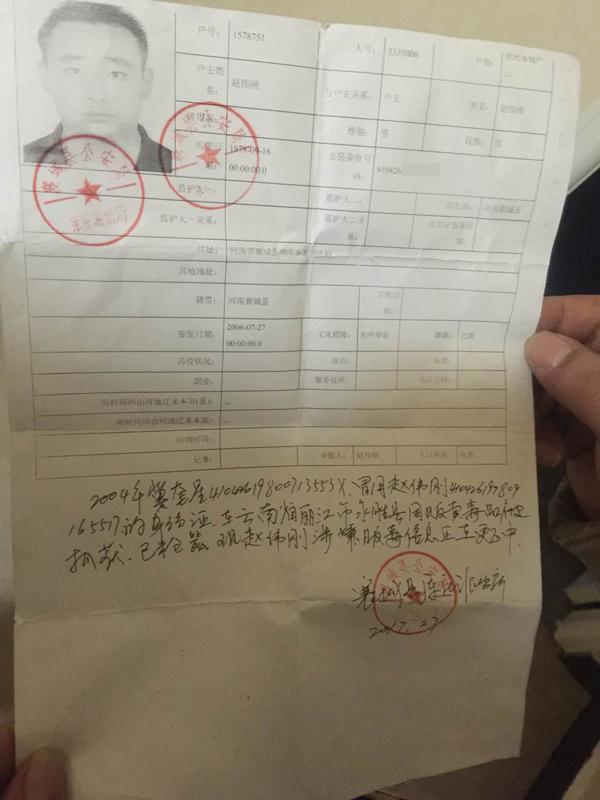 户号： 1578751 人号： 3335006 户类：
户主姓名： 赵伟刚 与户主关系： 户主 姓名： 赵伟刚
曾用名： 性别： 男 民族： 汉
出生日期： 1978-09-16 00:00:00.0 公民身份号码： 410426
监护人一： 监护人二： 出生地： 河南襄城县
监护人一关系： 监护人二关系： 出生证签发日期：
住址： 河南省襄城县
其他地址：
籍贯： 河南襄城县 宗教信仰：
签发日期： 2006-07-27 00:00:00.0 文化程度： 初中毕业 婚姻： 已婚
兵役状况： 身高： 血型：
职业： 服务处所：
何时何因由何地迁来本市(县)： --
何时何因由何地迁来本址： --
注销时间：
记事： 申报人： 赵伟刚
襄城县公安局
2004年 冒用赵伟刚410426197809
165517的身份证，在云南省丽江市永胜县因
抓获。 现赵伟刚涉嫌 毒信息正在更 中
襄城县 派出所